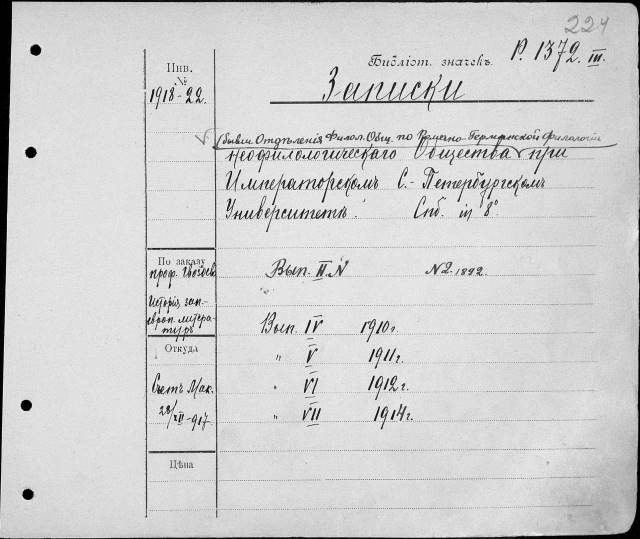 224
Библіот. значекъ. Р. 1372. III.
Инв.
№
1918-22.
Записки
(бывш. Отдѣленія Филол. Общ. по Романо-Германской Филологіи
Неофилологическаго Общества при
Императорскомъ С.-Петербургскомъ
Университетѣ. Спб. in 8°
По заказу
проф.
Исторія зап.-
европ. литера-
туръ
Вып. II. N N2. 1892.
Вып. IV 1910г.
" V 1911г.
" VI 1912г.
" VII 1914г.
Откуда
Счетъ Мак.
28/XII-917.
Цѣна